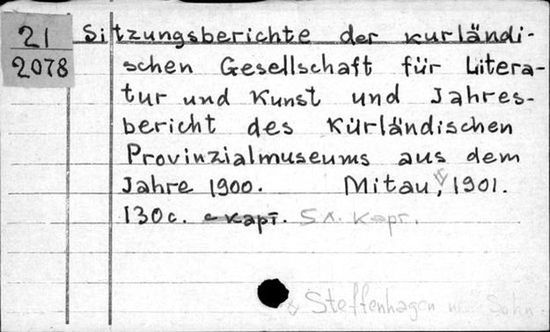 21
2078
Sitzungsberichte der kurländi-
schen Gesellschaft für Litera-
tur und Kunst und Jahres-
bericht des Kürländischen
Provinzialmuseums aus dem
Jahre 1900. Mitau, 1901.
130c. с карт. 5 л. карт.
Steffenhagen und Sohn.